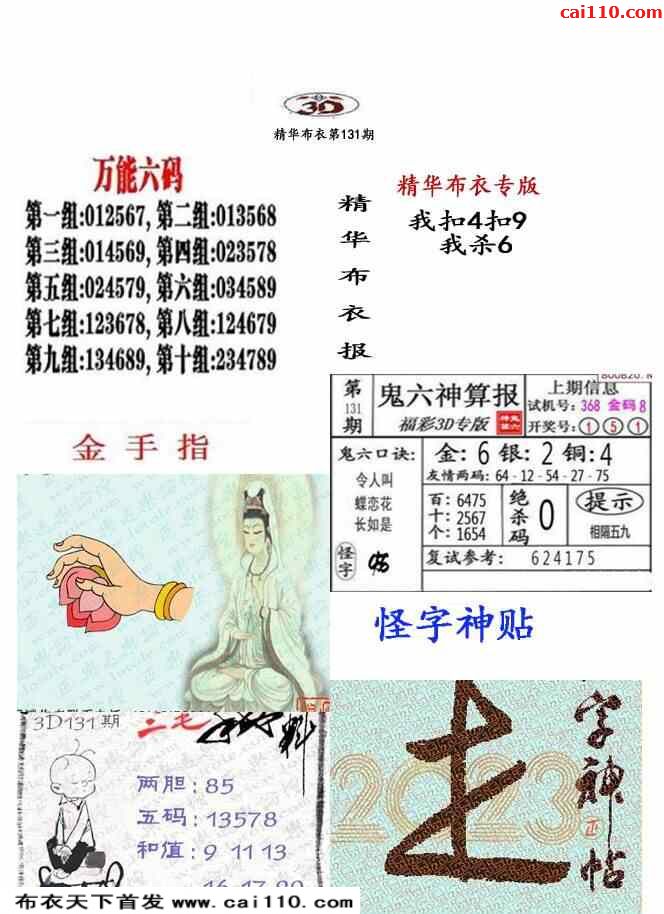 cai110.com
3D
精华布衣第131期
万能六码
第一组:012567,第二组:013568
第三组:014569,第四组:023578
第五组:024579,第六组:034589
第七组:123678,第八组:124679
第九组:134689,第十组:234789
精华布衣报
精华布衣专版
我扣4扣9
我杀6
金手指
第131期
鬼六神算报
福彩3D专版
上期信息
试机号:368 金码8
开奖号:①⑤①
鬼六口诀:
令人叫
蝶恋花
长如是
怪字
金:6银:2铜:4
友情两码:64-12-54-27-75
百:6475
十:2567
个:1654
绝杀码
0
提示
相隔五九
复试参考: 624175
怪字神贴
3D131期
二毛
料
两胆:85
五码:13578
和值:9 11 13
布衣天下首发 www.cai110.com
2023
字神帖